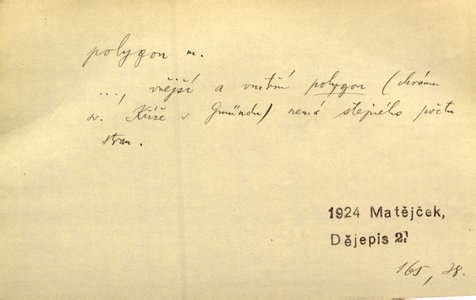 polygon m.
..., vnější a vnitřní polygon (chrámu
sv. Kříže v Gmündu) nemá stejného počtu
stran.
1924 Matějček,
Dějepis 2/
165, 28.